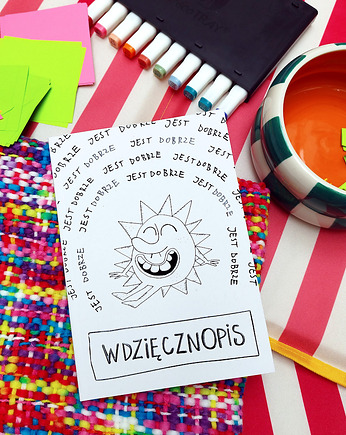 JEST DOBRZE JEST DOBRZE JEST DOBRZE
JEST DOBRZE JEST DOBRZE JEST DOBRZE
JEST DOBRZE JEST DOBRZE JEST DOBRZE
JEST DOBRZE JEST DOBRZE
WDZIĘCZNOPIS